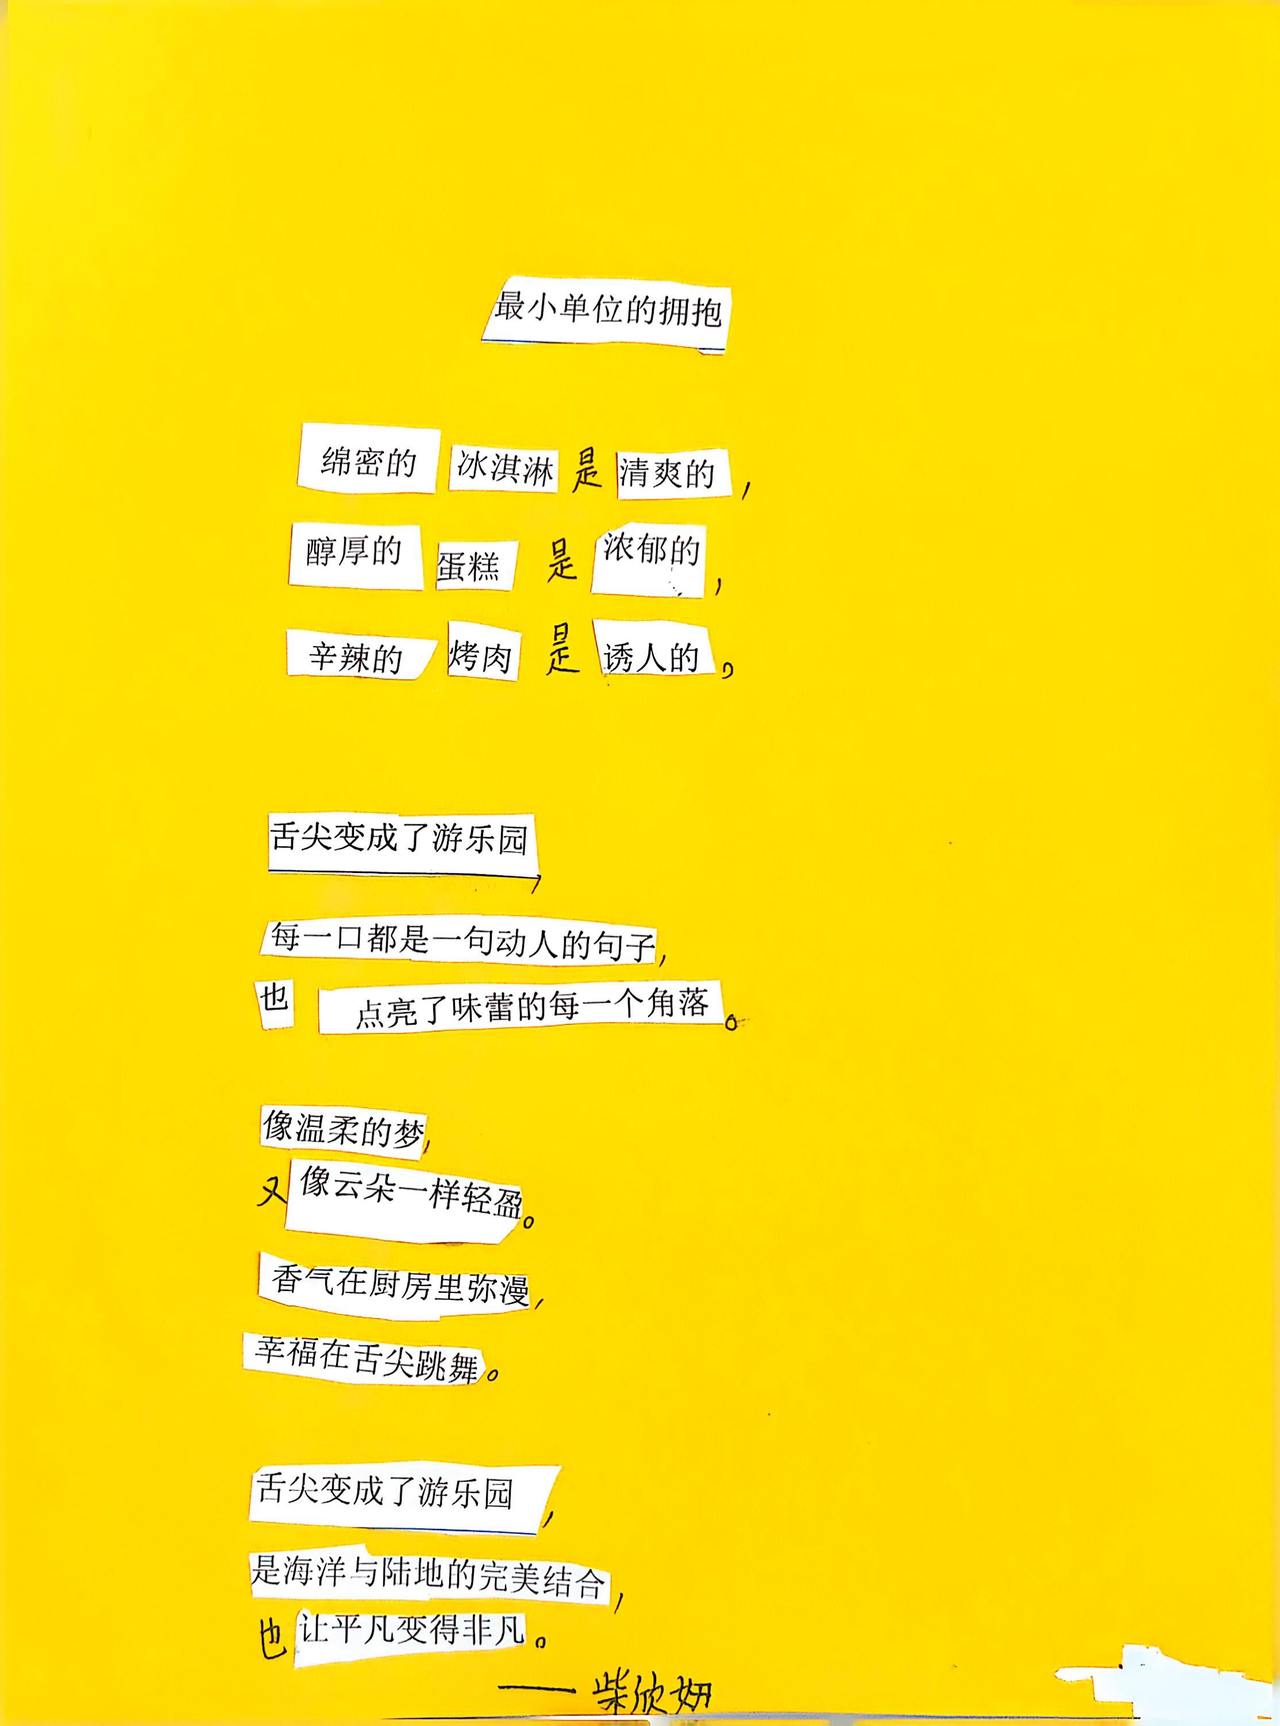 最小单位的拥抱
绵密的 冰淇淋 是 清爽的,
醇厚的 蛋糕 是 浓郁的,
辛辣的 烤肉 是 诱人的。
舌尖变成了游乐园,
每一口都是一句动人的句子,
也 点亮了味蕾的每一个角落。
像温柔的梦,
又像云朵一样轻盈。
香气在厨房里弥漫,
幸福在舌尖跳舞。
舌尖变成了游乐园,
是海洋与陆地的完美结合,
也让平凡变得非凡。
——柴欣妍